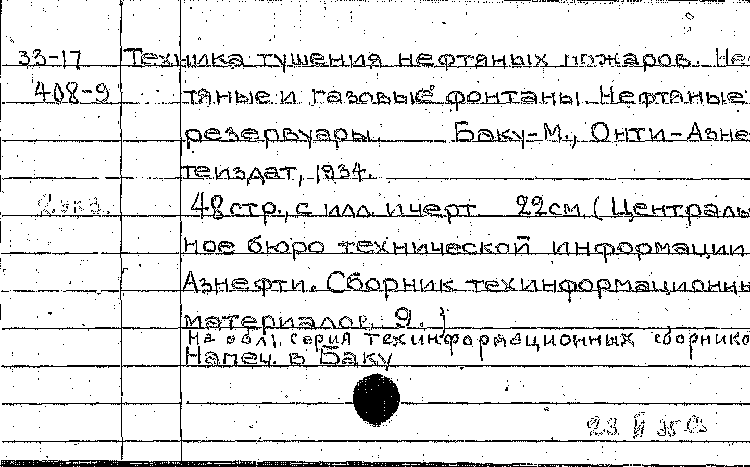 33-17 Техника тушения нефтяных пожаров. Неф
408-9 тяные и газовые фонтаны. Нефтяные
резервуары. Баку-М., Онти-Азне
теиздат, 1934.
2 экз. 48 стр., с илл. и черт. 22 см. (Централь
ное бюро технической информации
Азнефти. Сборник техинформационны
материалов, 9.)
На обл.: серия техинформационных сборнико
Напеч. в Баку
23 VI 35